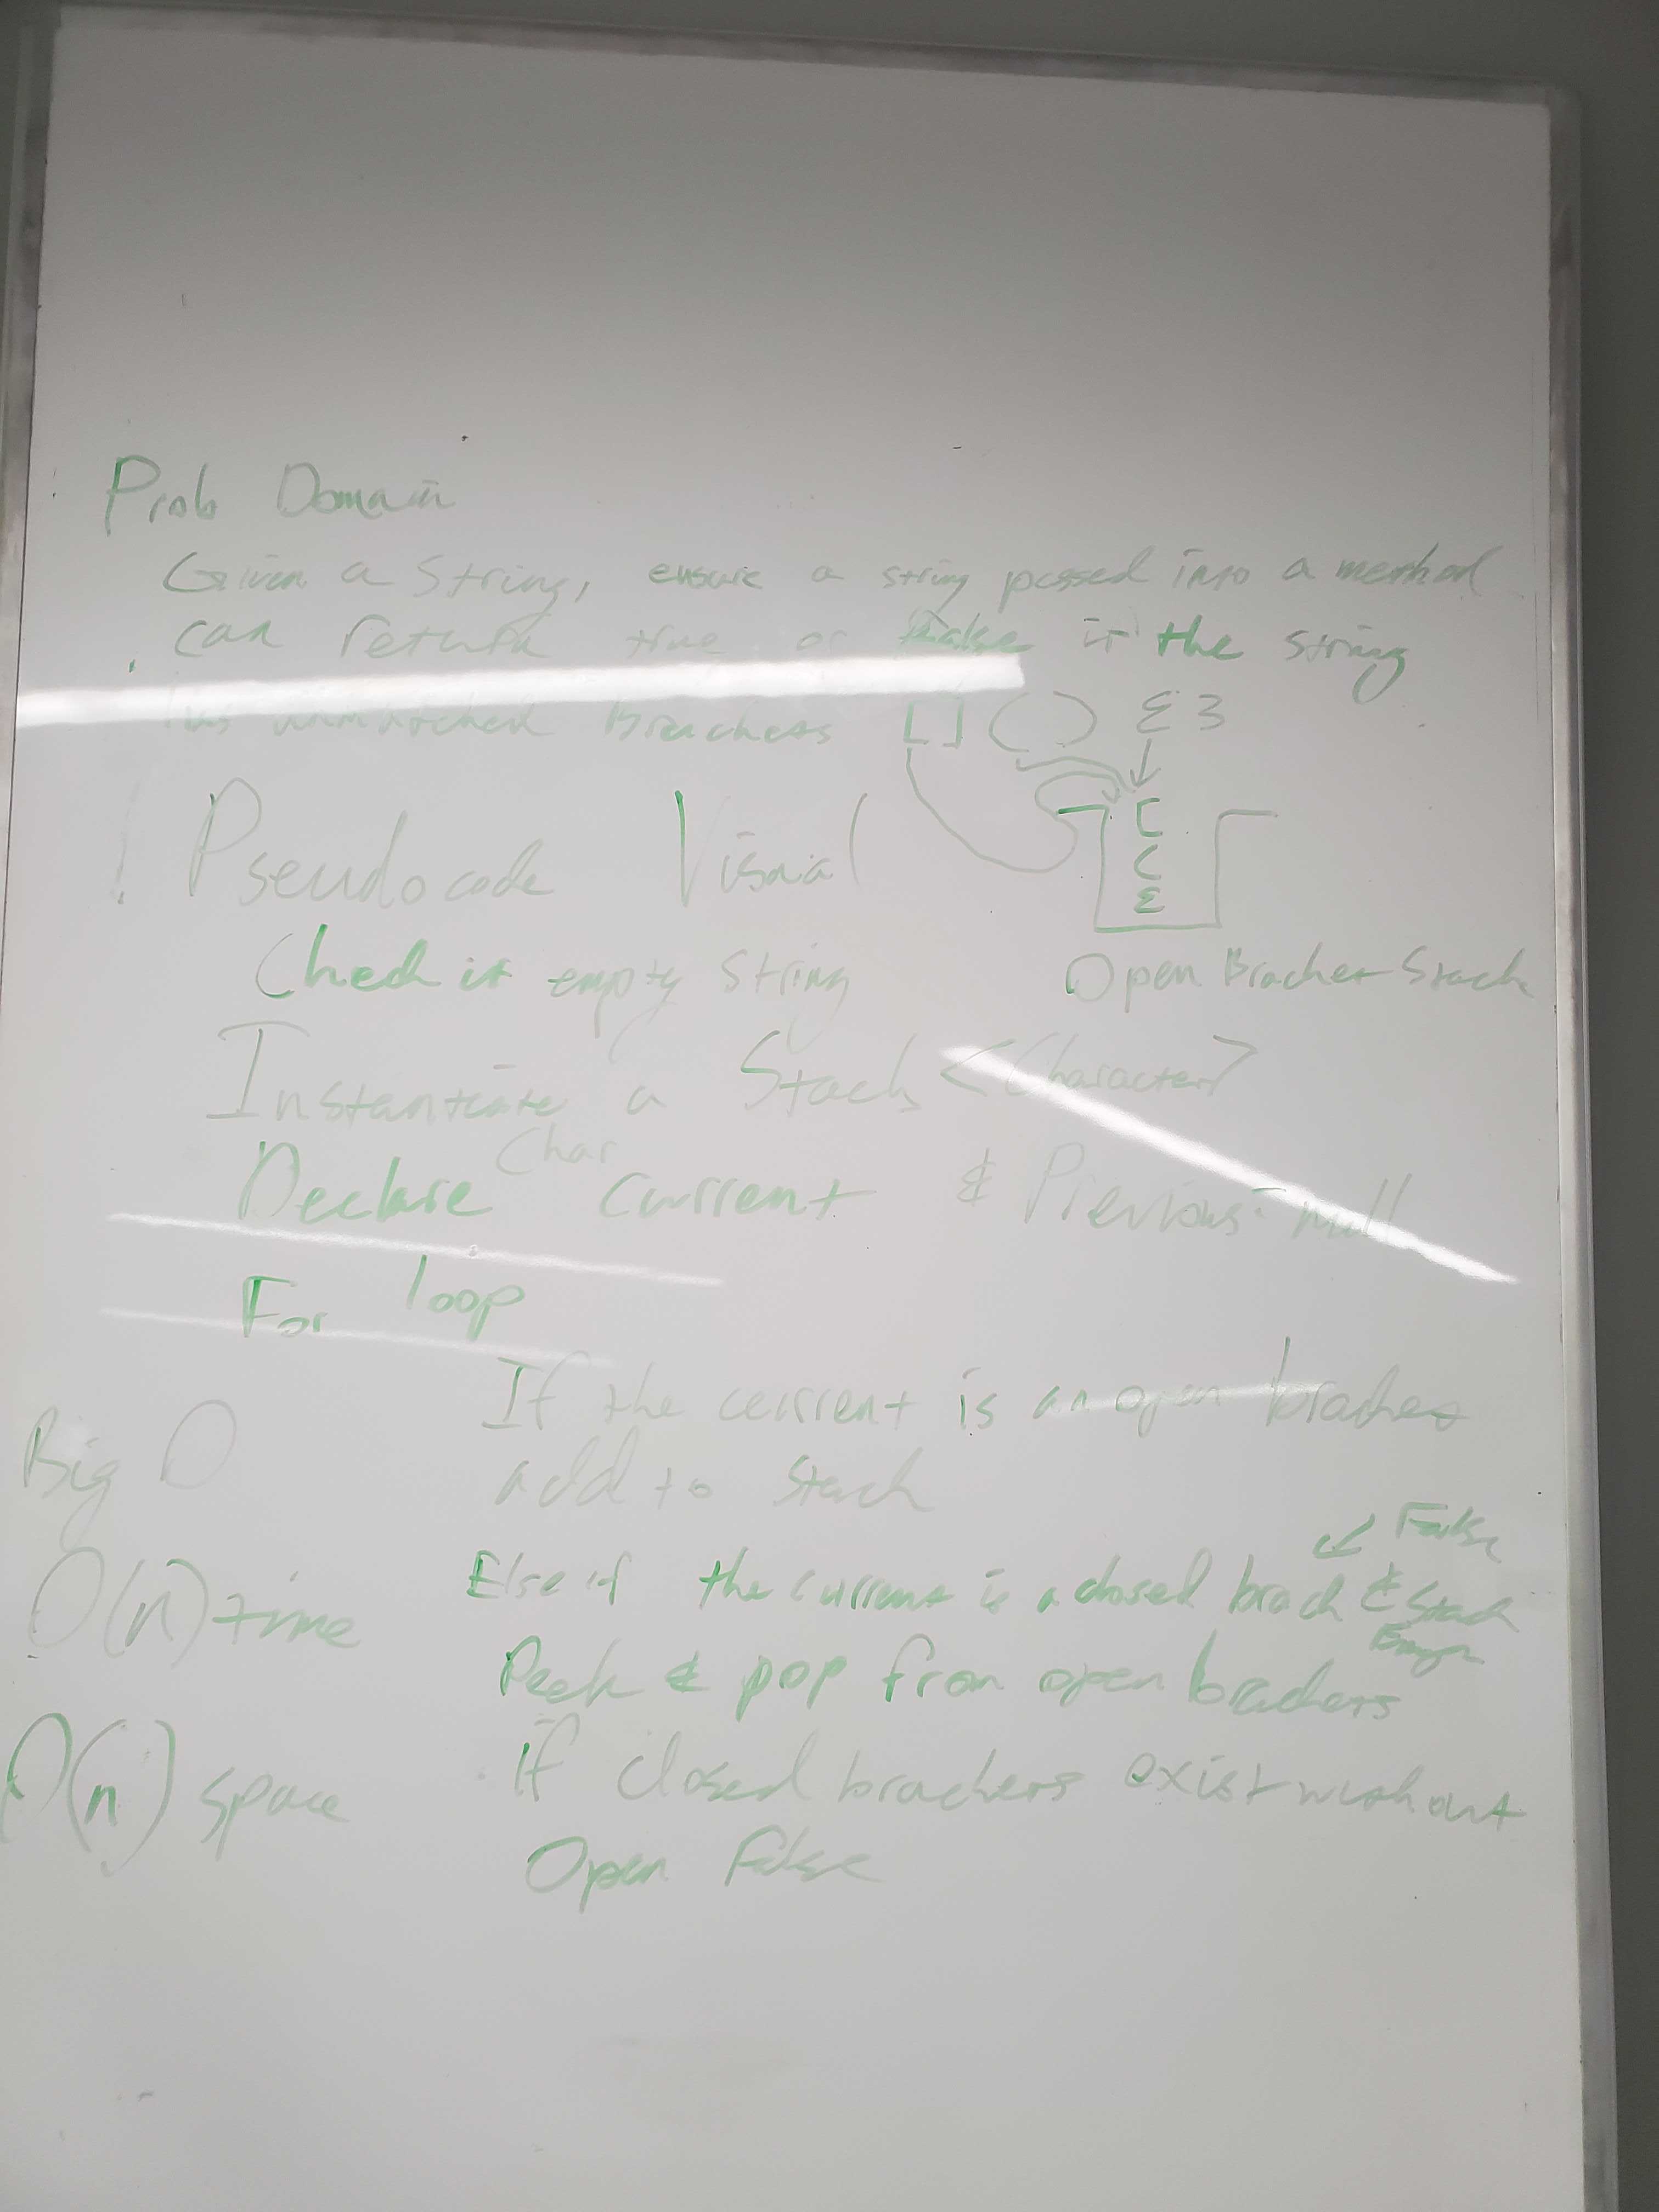 Prob Domain
Given a String, ensure a string passed into a method
can return true or false if the string
has unmatched Brackets [ ] ( ) { }
Pseudocode Visual
[
(
{
Check if empty string
Open Bracket Stack
Instantiate a Stack <Character>
Char
Declare current & Previous = null
For loop
If the current is an open bracket
add to stack
Big O
False
Else if the current is a closed brack & Stack
Empty
O(n) time
Peek & pop from open brackets
If closed brackets exist without
O(n) space
Open False